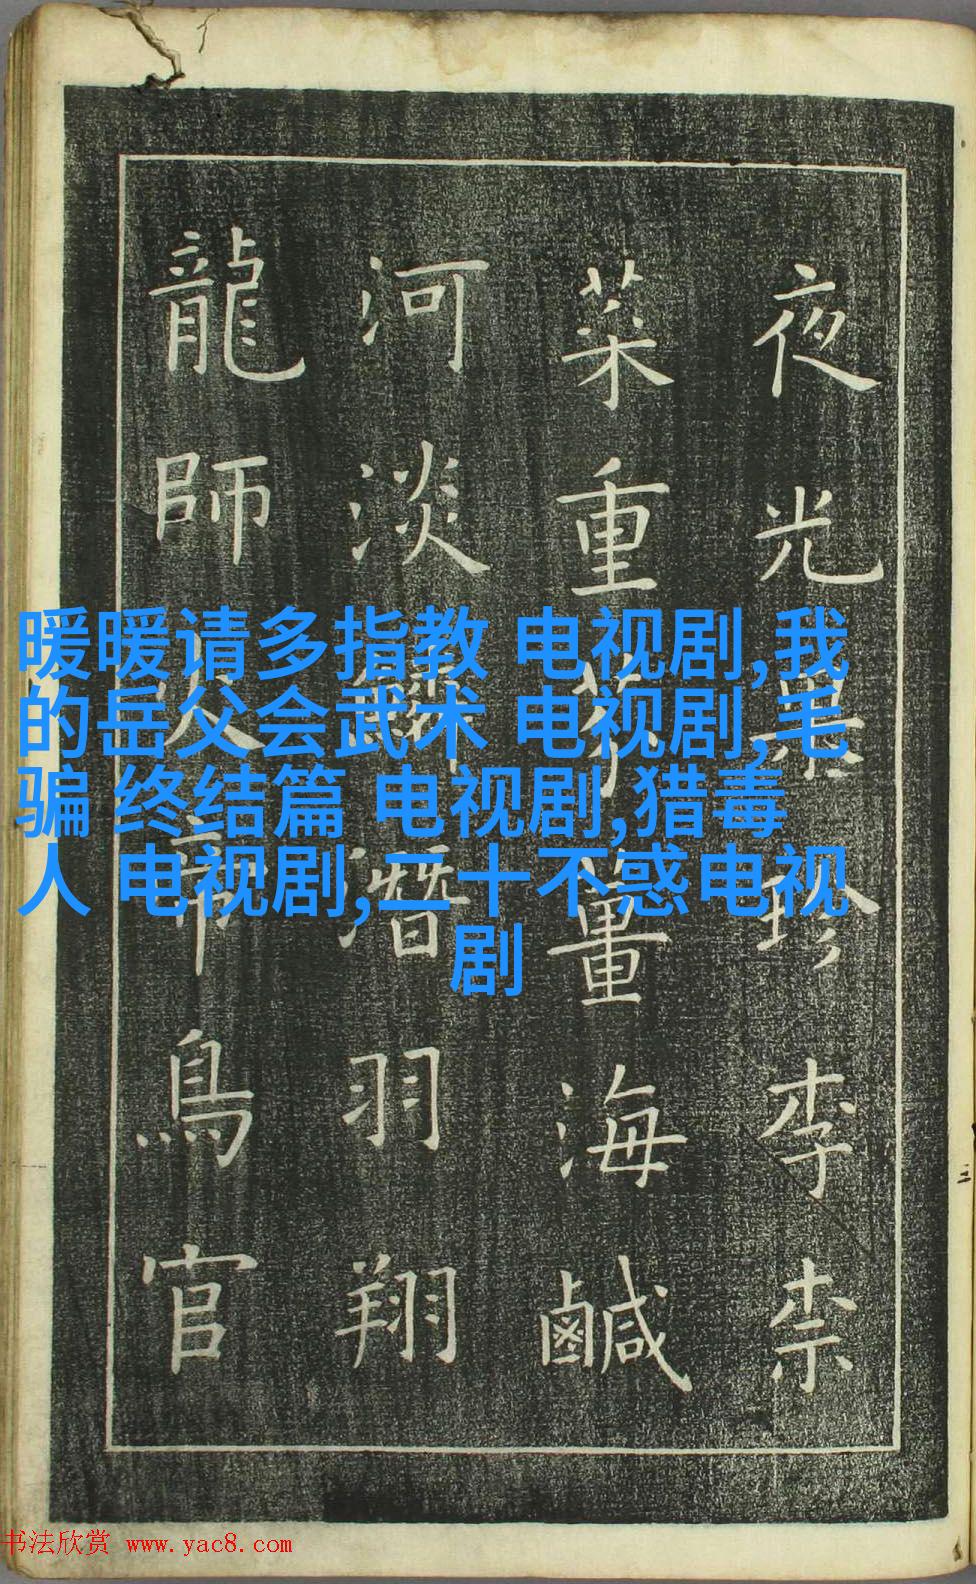 夜光果珍李柰
菜重芥薑海鹹
河淡潛羽翔
龍師火帝鳥官
暖暖请多指教 电视剧,我
的岳父会武术 电视剧,毛
骗 终结篇 电视剧,猎毒
人 电视剧,二十不惑电视
剧
书法欣赏 www.yac8.com